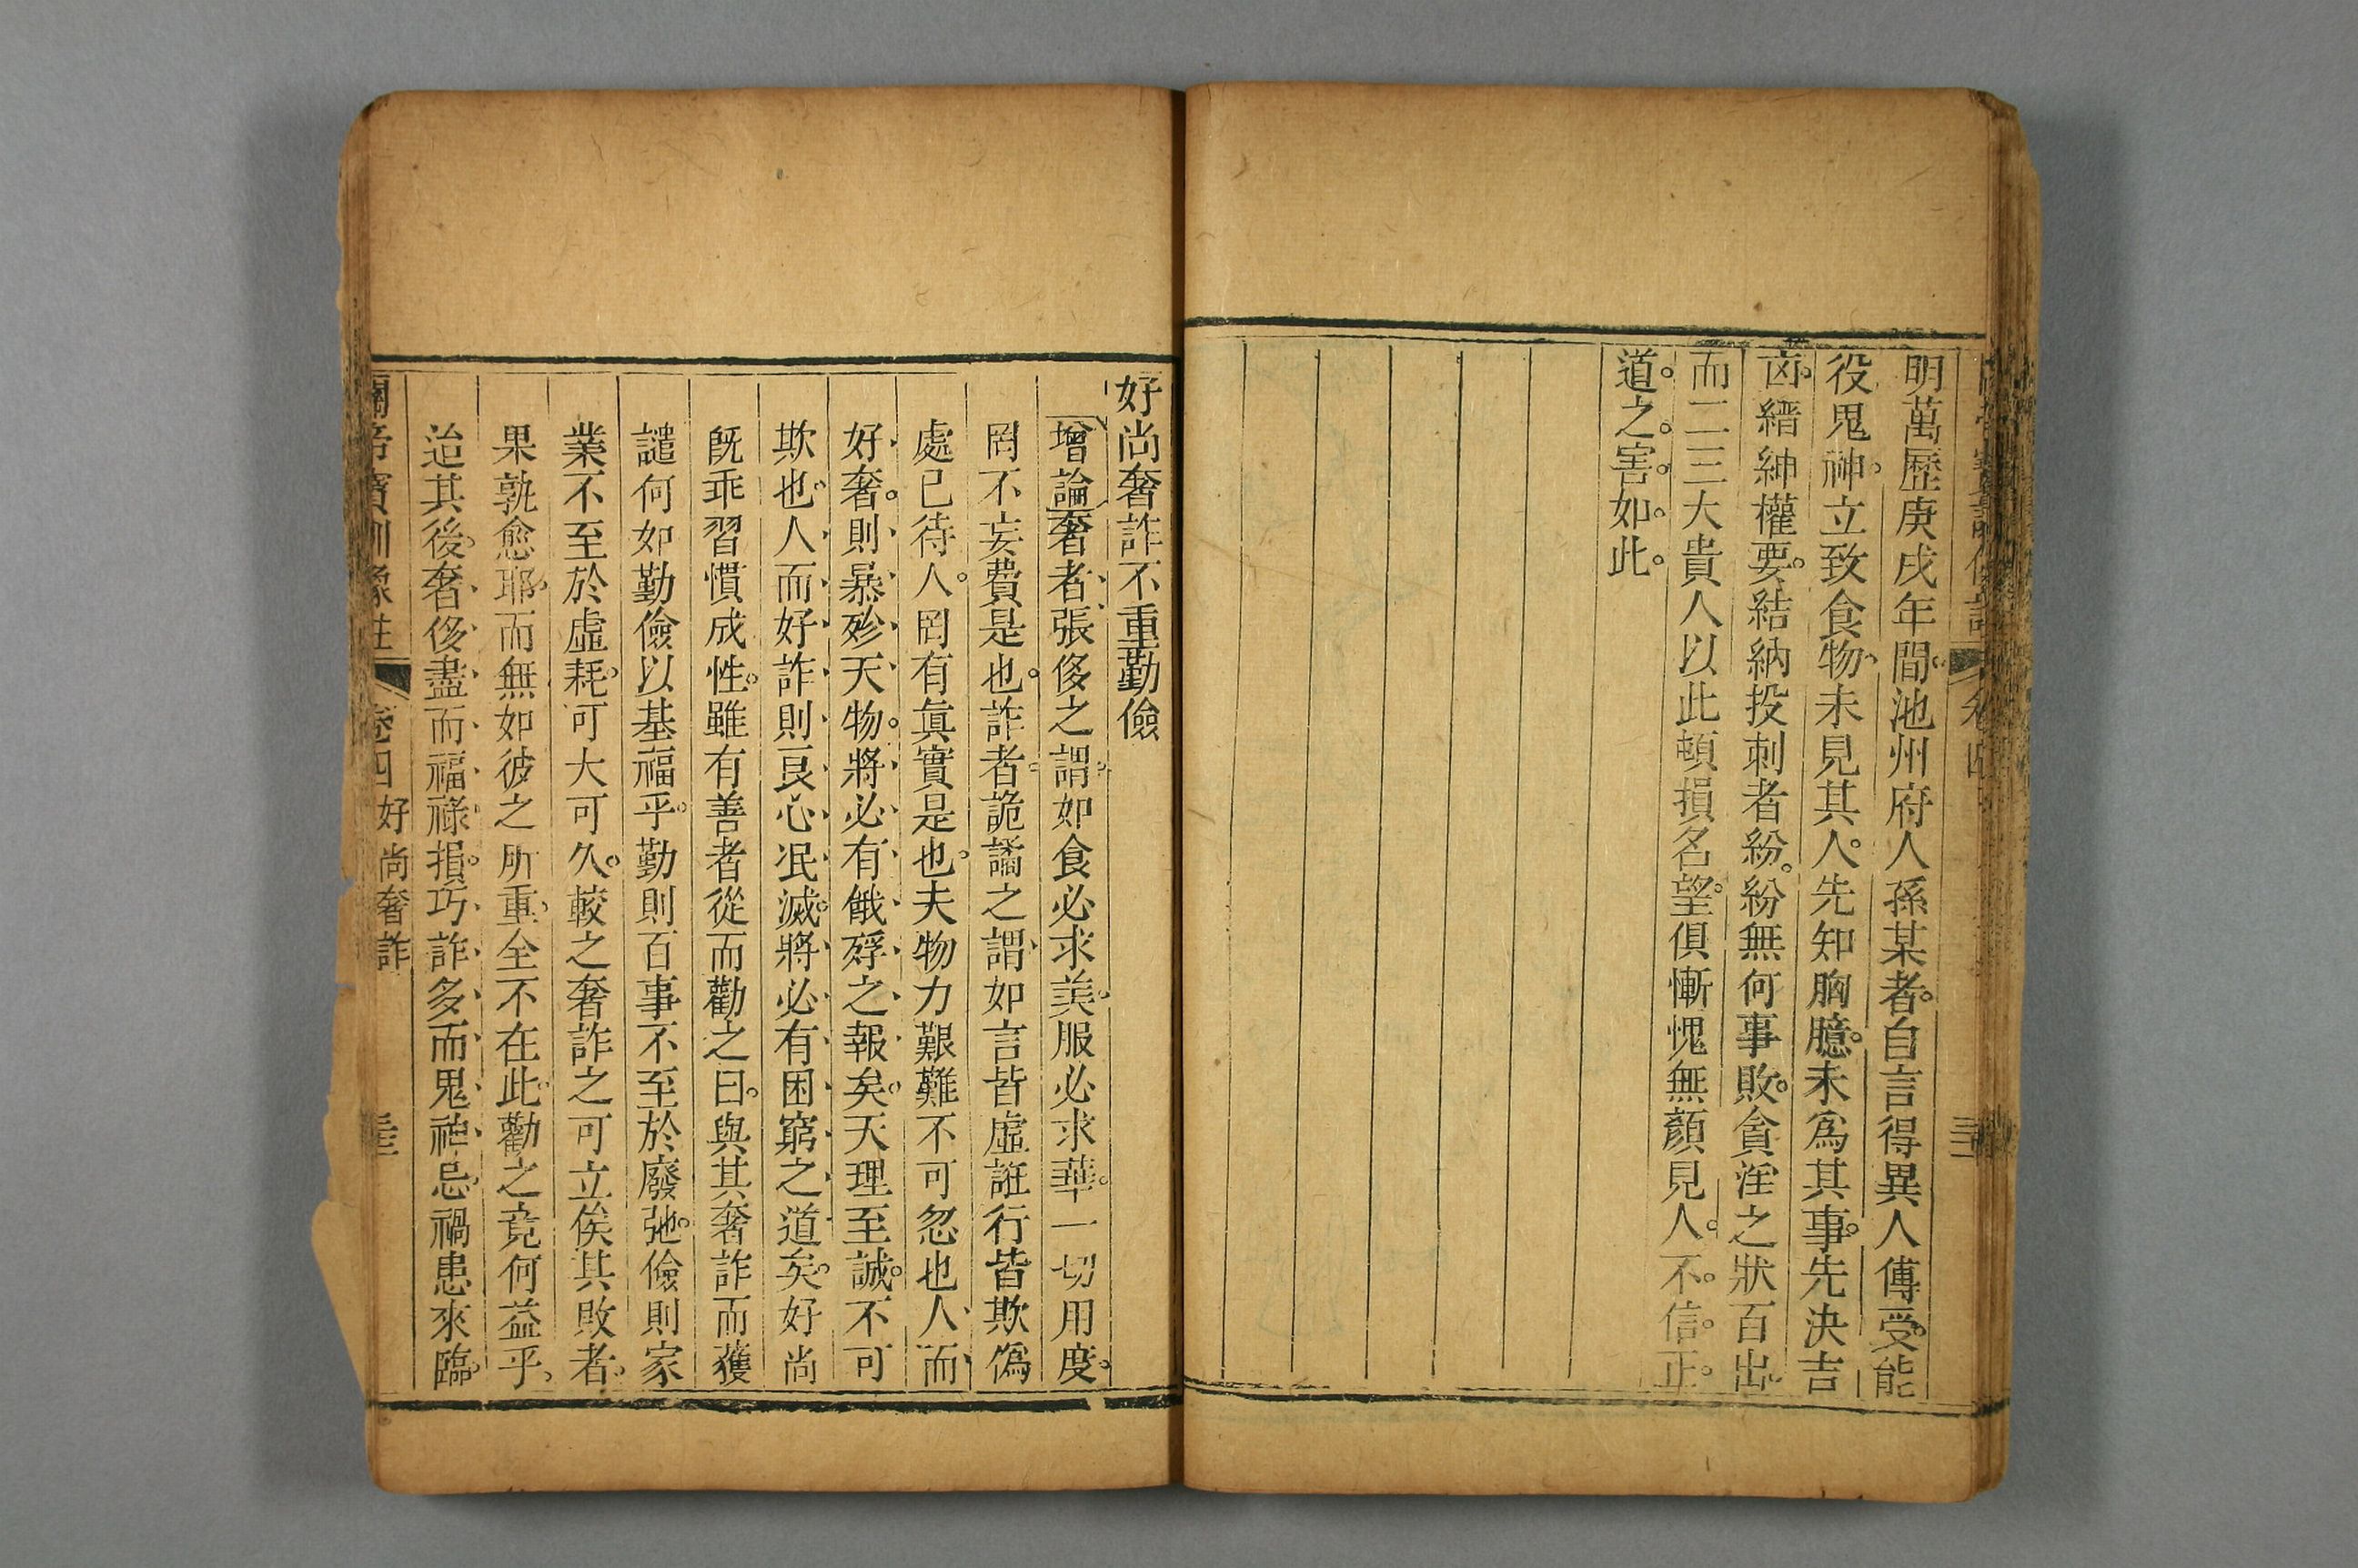 明萬歷庚戌年間池州府人孫某者自言得異人傳受能
役鬼神立致食物未見其人先知胸臆未爲其事先決吉
凶縉紳權要結納投刺者紛紛無何事敗貪淫之狀百出
而二三大貴人以此頓損名望俱慚愧無顏見人不信正
道之害如此
好尚奢詐不重勤儉
增論奢者張侈之謂如食必求美服必求華一切用度
罔不妄費是也詐者詭譎之謂如言皆虛誑行皆欺僞
處己待人罔有眞實是也夫物力艱難不可忽也人而
好奢則暴殄天物將必有餓殍之報矣天理至誠不可
欺也人而好詐則良心泯滅將必有困窮之道矣好尚
旣乖習慣成性雖有善者從而勸之曰與其奢詐而獲
譴何如勤儉以基福乎勤則百事不至於廢弛儉則家
業不至於虛耗可大可久較之奢詐之可立俟其敗者
果孰愈耶而無如彼之所重全不在此勸之竟何益乎
迨其後奢侈盡而福祿損巧詐多而鬼神忌禍患來臨
卷四 好尚奢詐